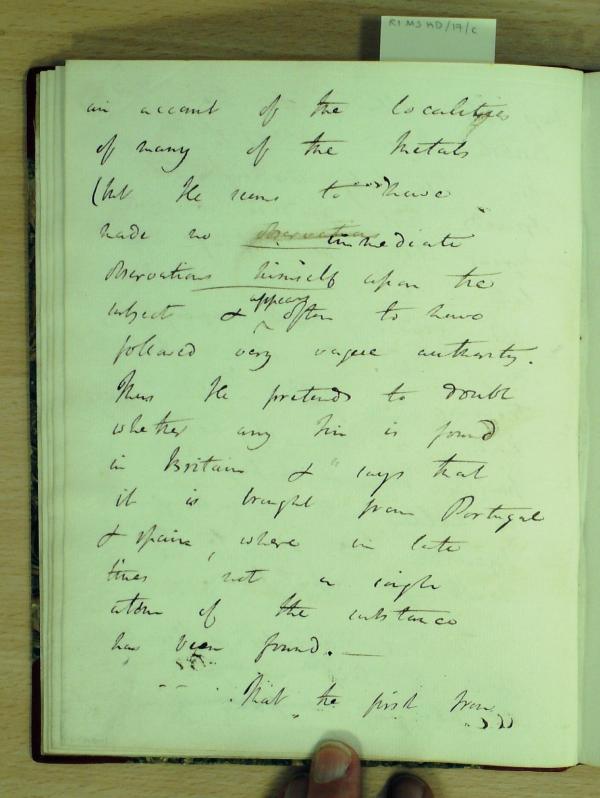 RI MS HD/17/c
an account of the localities
of many of the Metals
(but He seems to have
made no observations immediate
observations himself upon the
subject & appears often to have
followed very vague authority.
Thus He pretends to doubt
whether any tin is found
in Britain & says that
it is brought from Portugal
& Spain, where in late
times not a single
atom of the substance
has been found. —
That the first